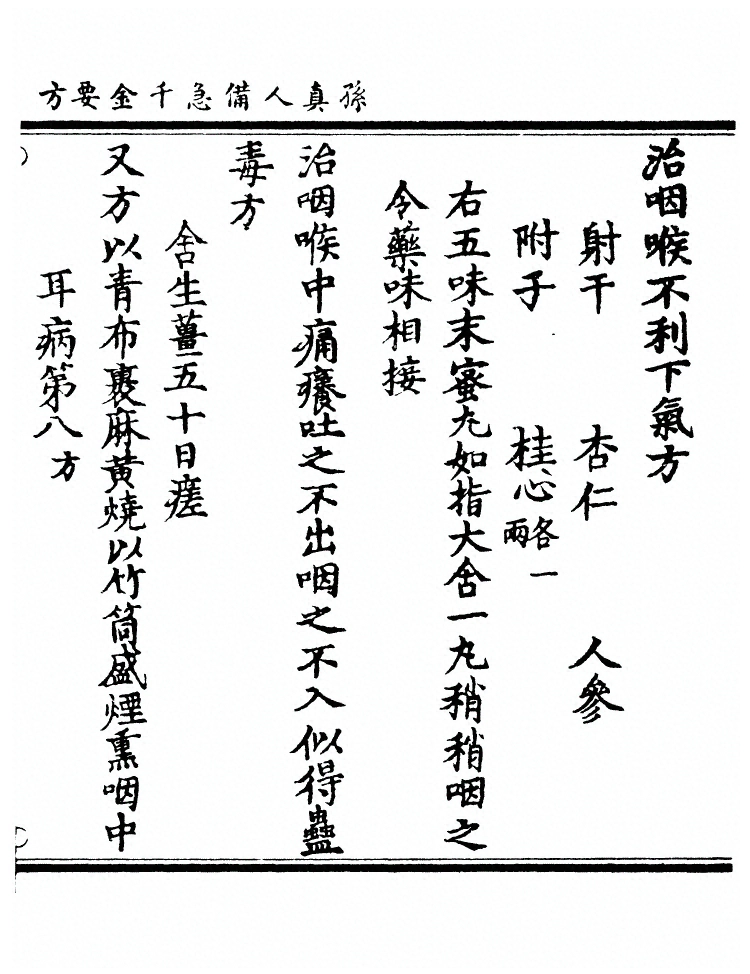 孫真人備急千金要方
治咽喉不利下氣方
射干 杏仁 人參
附子 桂心各一兩
右五味末蜜丸如指大含一丸稍稍咽之
令藥味相接
治咽喉中痛癢吐之不出咽之不入似得蠱
毒方
含生薑五十日瘥
又方以青布裹麻黃燒以竹筒盛煙熏咽中
耳病第八方